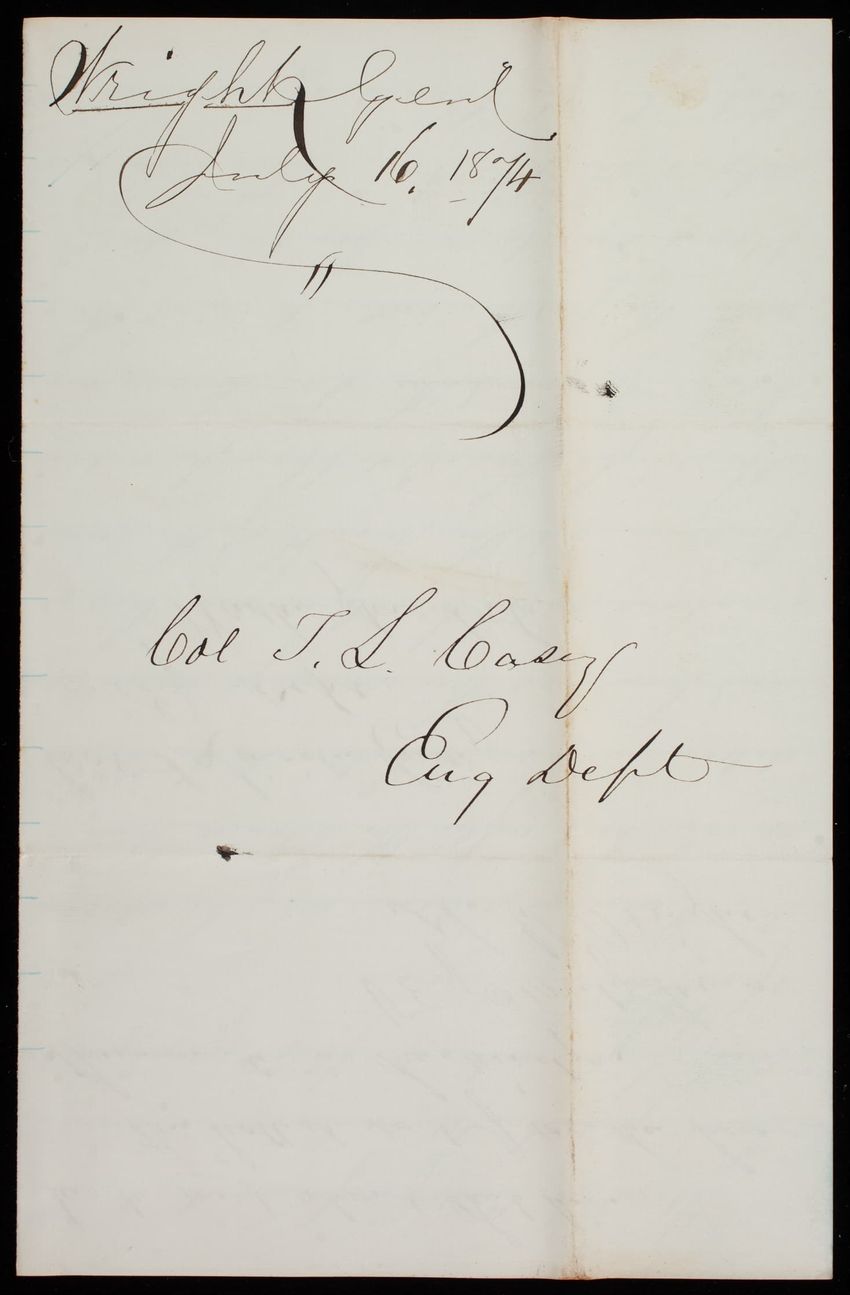 Wright Genl
July 16. 1874
"
Col T. L. Casey
Eng Dept